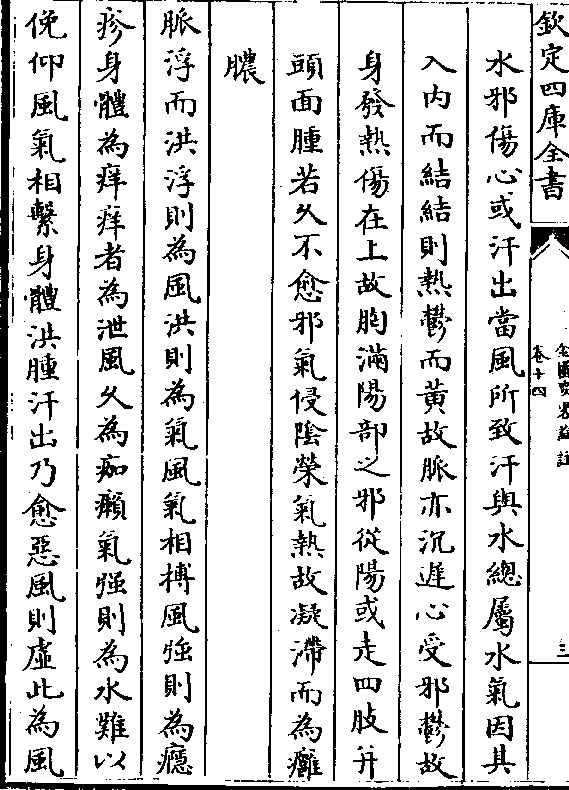 欽定四庫全書
金匱要畧論註
卷十四
三
水邪傷心或汗出當風所致汗與水總屬水氣因其
入内而結結則熱鬱而黄故脈亦沉遲心受邪鬱故
身發熱傷在上故胸滿陽部之邪從陽或走四肢并
頭面腫若久不愈邪氣侵陰榮氣熱故凝滯而為癰
膿
脈浮而洪浮則為風洪則為氣風氣相搏風强則為癮
疹身體為痒痒者為泄風久為痂癩氣强則為水難以
俛仰風氣相繫身體洪腫汗出乃愈惡風則虛此為風